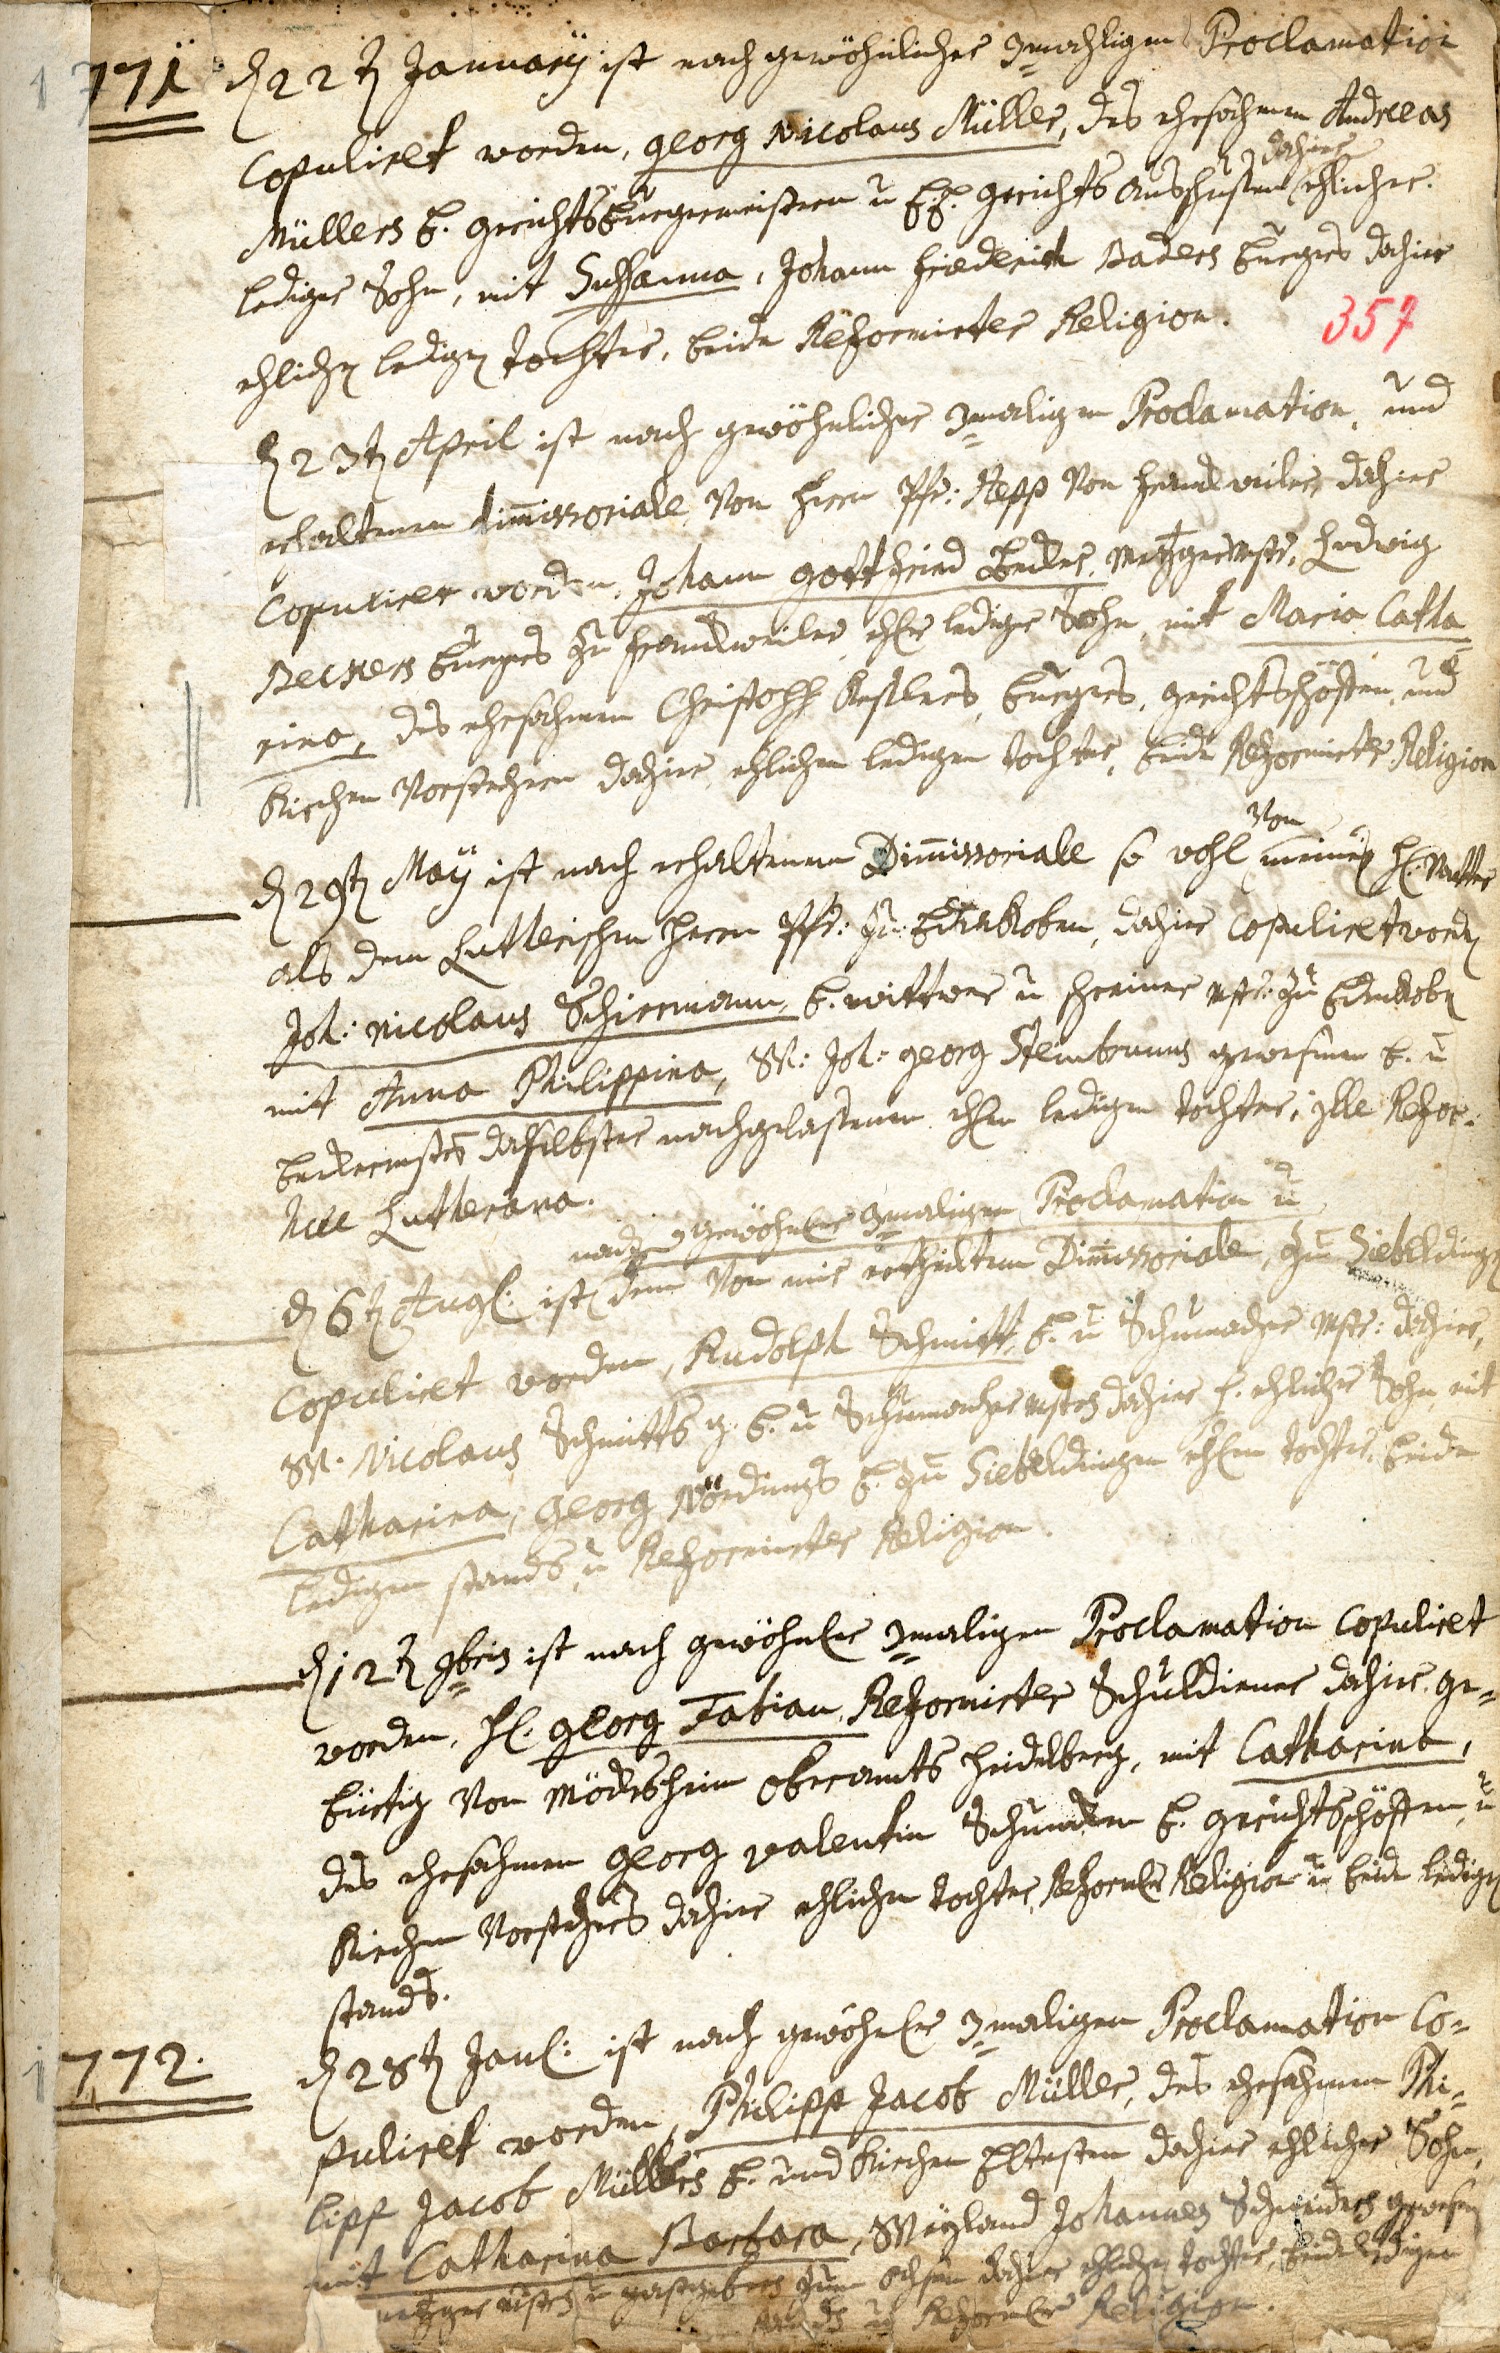 1771
d 22t January ist nach gewöhnlicher 3mahligen Proclamation
Copuliret worden, Georg Nicolaus Müller, des ehrsahmen Andreas
Müllers b. Gerichtsbürgermeistern u E.E. Gerichts ausschusten dahier ehlicher
lediger Sohn, mit Sussanna, Johann Friederich Baders burgers dahier
ehlich ledig tochter, beide Reformirter Religion.
357
d 23t April ist nach gewöhnlicher 3maligen Proclamation, und
erhaltenem dimissoriale Von Herrn Pfr: Repp Von Franckweiler, dahier
Copuliret worden, Johann Gottfried Becker, Metzgermstr, Ludwig
Beckers burgers zu Franckweiler, ehlr lediger Sohn, mit Maria Catha
rina, des ehrsahmen Christoph Keslers, burgers, gerichtschöffen, und
Kirchen Vorstehern dahier, ehlichen ledigen tochter, beide Reformirter Religion
d 29t May ist nach erhaltenem Dimissoriale so wohl Von meinem H. Vatter
als dem Lutherischen Herrn Pfr: zu Edenkoben, dahier Copuliret word
Joh: Nicolaus Schirmann, b. wittwer u schreiner mstr: zu Edenkob
mit Anna Philippina, W: Joh: Georg Steinbrunns gewesenen b. u
beckermstrs daselbster nachgelassenen ehlen ledigen tochter, ille Refor:
haec Lutherana.
nach gewöhnlr 3maligen Proclamation u
d 6t Augl: ist dem Von mir ertheiltem Dimissoriale, zu Siebelding
Copuliret worden, Rudolph Schmitt, b. u Schumacher mstr: dahier,
W. Nicolaus Schmitts g. b. u Schumacher mstrs dahier h. ehlicher Sohn, mit
Catharina, Georg Nördings b. zu Siebeldingen ehlen tochter, beide
ledigen stands u Reformirter Religion.
d 12t 9bris ist nach gewöhnlr 3maligen Proclamation Copuliret
worden, H. Georg Fabian, Reformirter Schuldiener dahier, ge=
bürtig Von Möckesheim Oberamts Heidelberg, mit Catharina,
des ehrsahmen Georg Valentin b. gerichtschöffen, u
Kirchen Vorstehers dahier ehlichen tochter, Reformlr Religion u beide ledig
stands.
1772.
d 28t Janl: ist nach gewöhnlr 3maligen Proclamation Co=
puliret worden, Philipp Jacob Müller, des ehrsahmen Phi=
lipp Jacob Müllers b. und Kirchen Eltesten dahier ehlicher Sohn,
mit Catharina Barbara, Weyland Johannes Schneiders gewesen
metzger mstrs u gastgebers zum Ochsen dahier ehlich tochter, beide ledigen
stands u Reformlr Religion.